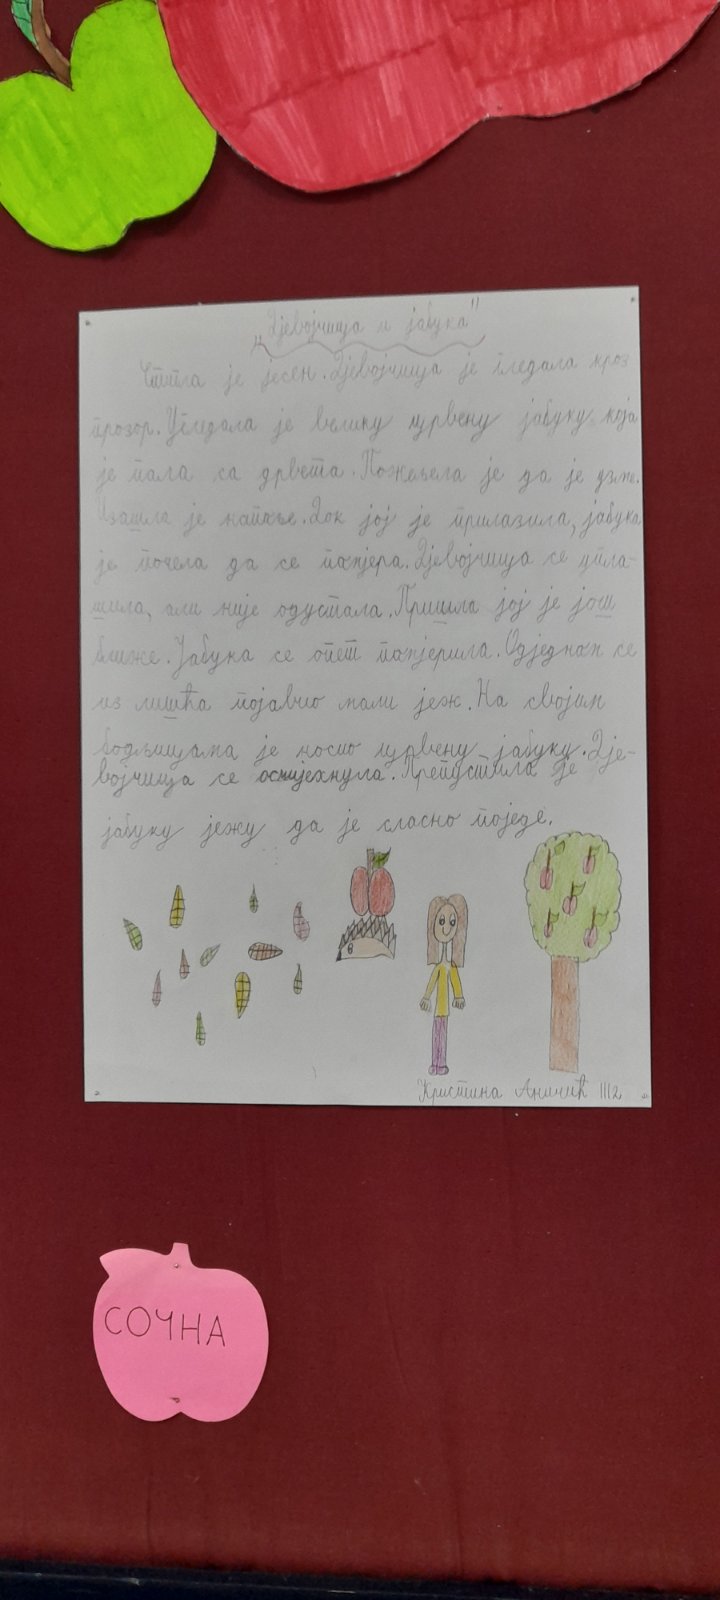 „Дјевојчица и јабука"
Стигла је јесен. Дјевојчица је гледала кроз
прозор. Угледала је велику црвену јабуку која
је пала са дрвета. Пожељела је да је узме.
Изашла је напоље. Док јој је прилазила, јабука
је почела да се помјера. Дјевојчица се упла-
шила, али није одустала. Пришла јој је још
ближе. Јабука се опет помјерила. Одједном се
из лишћа појавио мали јеж. На својим
бодљицама је носио црвену јабуку. Дје-
војчица се осмјехнула. Препустила је
јабуку јежу да је сласно поједе.
Кристина Аничић III2
СОЧНА